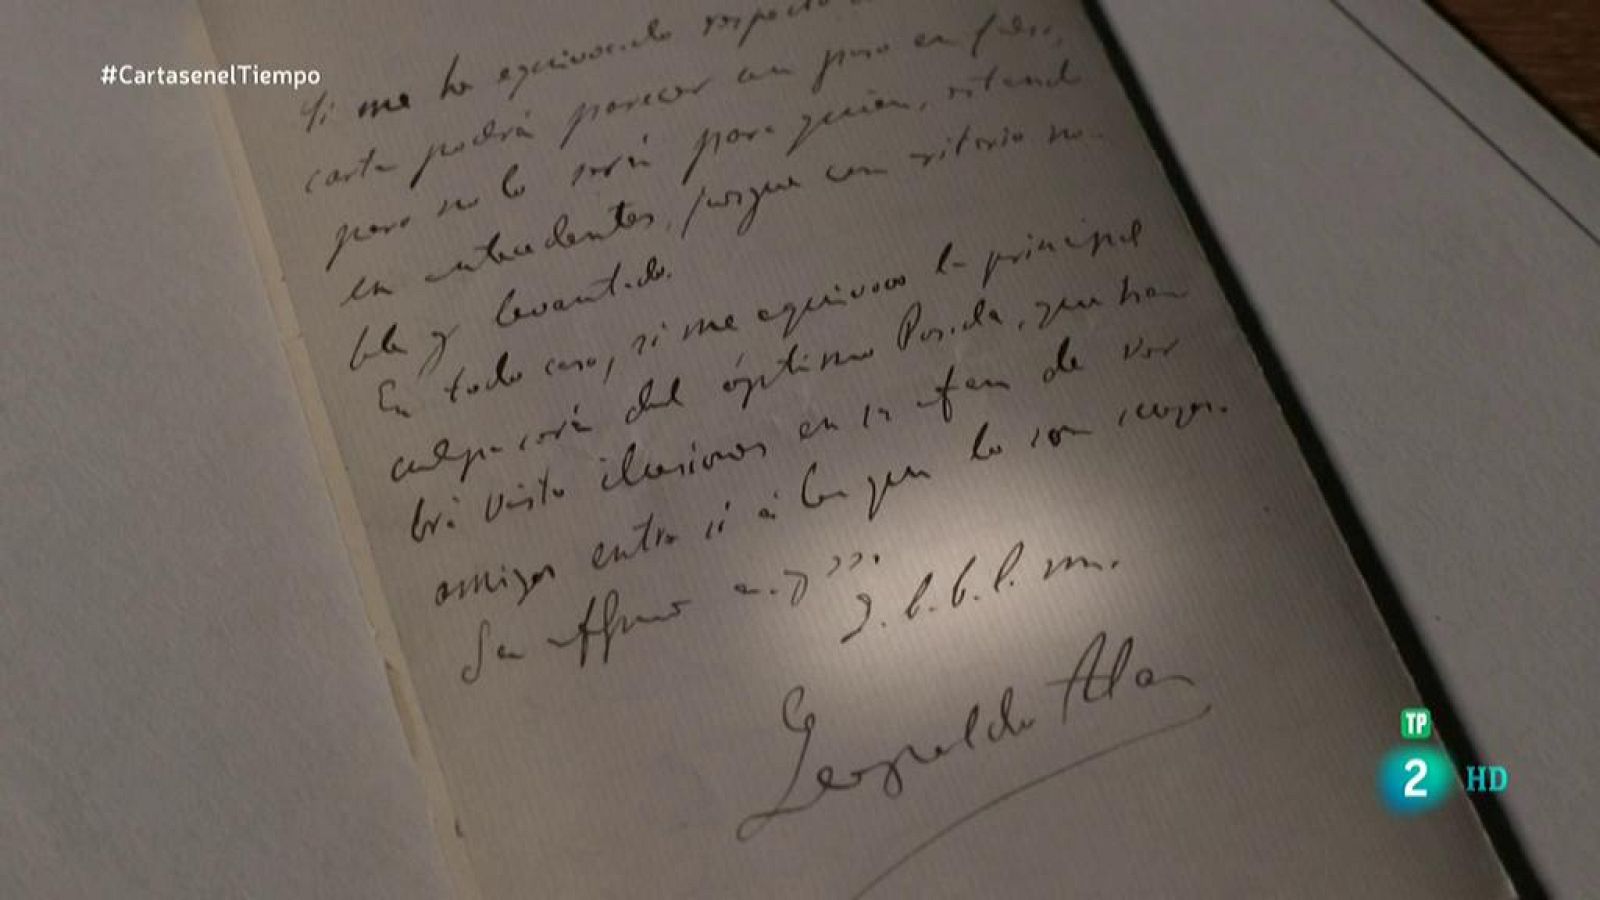 #CartasenelTiempo
Si me he equivocado respecto
carta podrá parecer un paso en falso,
pero no lo será para quien, estando
en antecedentes, juzgue con criterio no-
ble y levantado.
En todo caso, si me equivoco la principal
culpa será del óptimo Posada, que ha-
brá visto ilusiones en su afan de ver
amigos entre sí á los que lo son suyos.
Su affmo a. y
q. l. b. l. m.
Leopoldo Alas
TP
2 HD